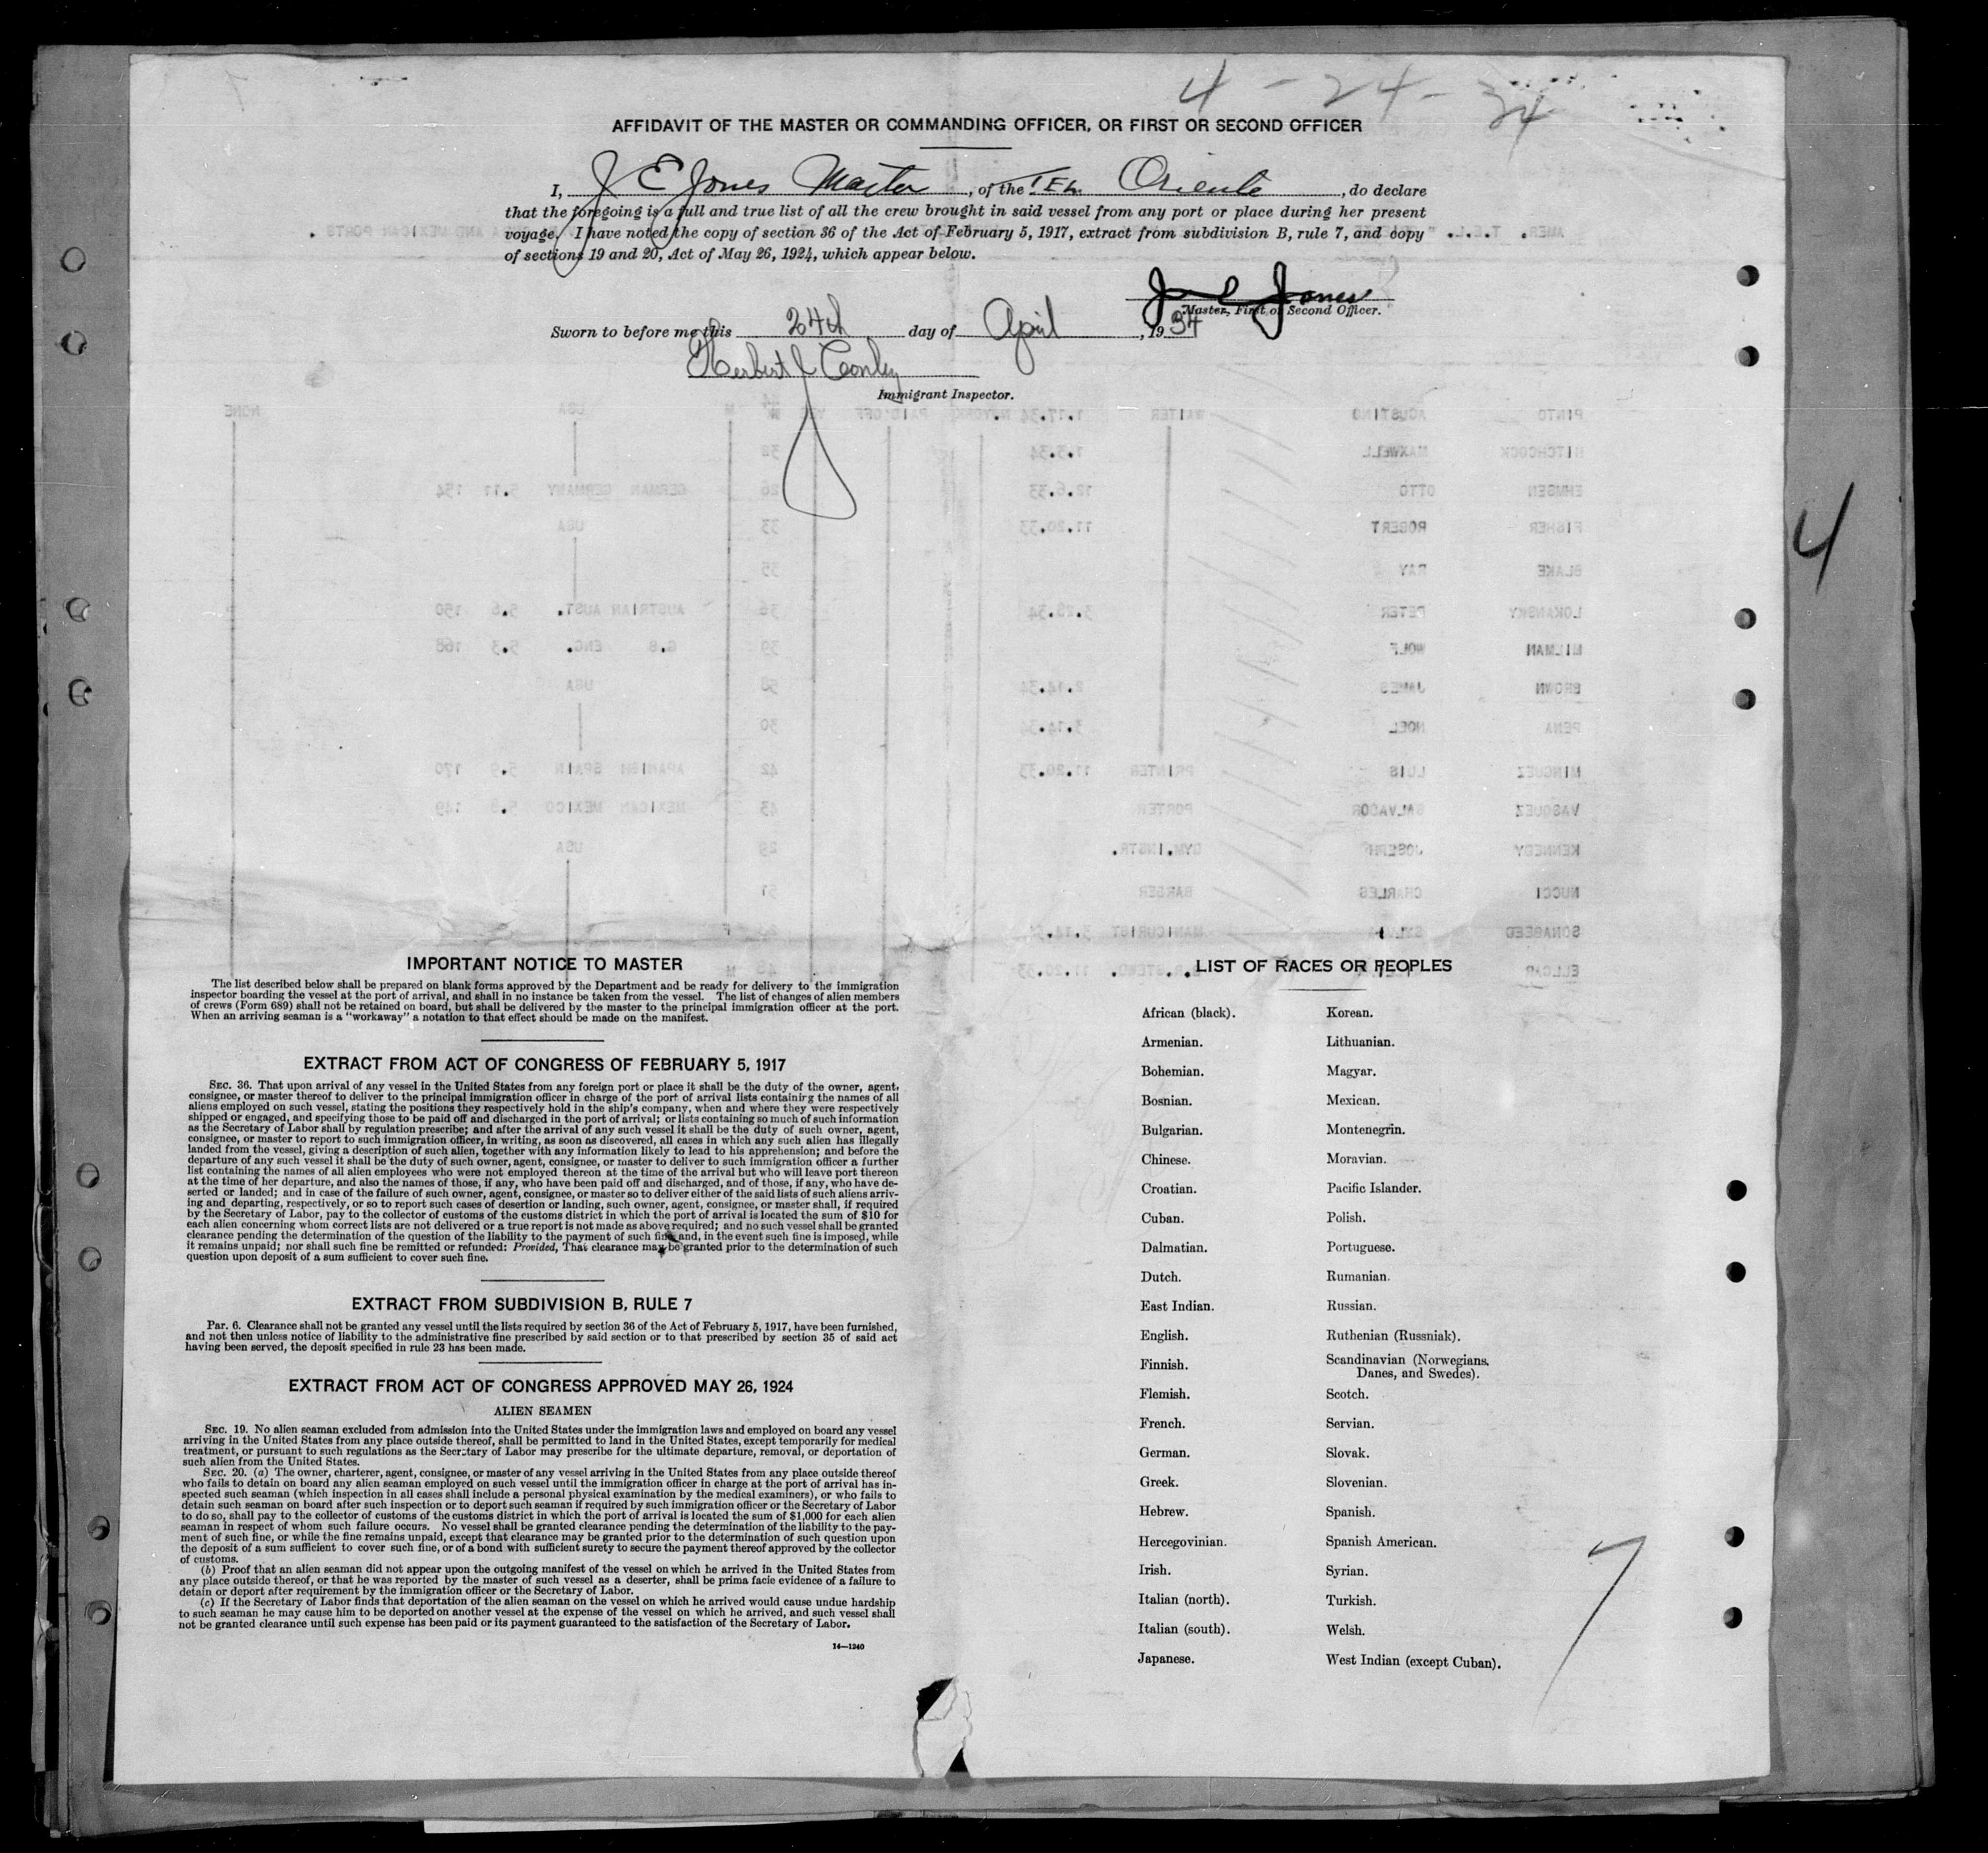 4 - 24 - 34
AFFIDAVIT OF THE MASTER OR COMMANDING OFFICER, OR FIRST OR SECOND OFFICER
I, J E Jones Master, of the T.E.L. Oriente, do declare
that the foregoing is a full and true list of all the crew brought in said vessel from any port or place during her present
voyage. I have noted the copy of section 36 of the Act of February 5, 1917, extract from subdivision B, rule 7, and copy
of sections 19 and 20, Act of May 26, 1924, which appear below.
J E Jones
Master, First or Second Officer.
Sworn to before me this 24th day of April, 1934
Herbert J Conley
Immigrant Inspector.
4
PINTO AGUSTINO WAITER 1.17.34 N.YORK PAID OFF M USA NONE
HITCHCOCK MAXWELL 1.3.34
EHMSEN OTTO 12.6.33 26 GERMAN GERMANY 5.11 154
FISHER ROBERT 11.20.33 33 USA
BLAKE RAY 35
LOKANSKY PETER 3.28.34 36 AUSTRIAN AUST. 5.6 150
MILMAN WOLF 39 G.B ENG. 5.3 168
BROWN JAMES 2.14.34 USA
PENA NOEL 3.14.34 30
MINGUEZ LUIS PRINTER 11.20.33 42 SPANISH SPAIN 5.9 170
VASQUEZ SALVADOR PORTER 43 MEXICAN MEXICO 149
KENNEDY JOSEPH GYM.INSTR. 29 USA
NUCCI CHARLES BARBER 51
MANICURIST 3.14.34 F
11.20.33 M
IMPORTANT NOTICE TO MASTER
The list described below shall be prepared on blank forms approved by the Department and be ready for delivery to the immigration
inspector boarding the vessel at the port of arrival, and shall in no instance be taken from the vessel. The list of changes of alien members
of crews (Form 689) shall not be retained on board, but shall be delivered by the master to the principal immigration officer at the port.
When an arriving seaman is a "workaway" a notation to that effect should be made on the manifest.
EXTRACT FROM ACT OF CONGRESS OF FEBRUARY 5, 1917
SEC. 36. That upon arrival of any vessel in the United States from any foreign port or place it shall be the duty of the owner, agent,
consignee, or master thereof to deliver to the principal immigration officer in charge of the port of arrival lists containing the names of all
aliens employed on such vessel, stating the positions they respectively hold in the ship's company, when and where they were respectively
shipped or engaged, and specifying those to be paid off and discharged in the port of arrival; or lists containing so much of such information
as the Secretary of Labor shall by regulation prescribe; and after the arrival of any such vessel it shall be the duty of such owner, agent,
consignee, or master to report to such immigration officer, in writing, as soon as discovered, all cases in which any such alien has illegally
landed from the vessel, giving a description of such alien, together with any information likely to lead to his apprehension; and before the
departure of any such vessel it shall be the duty of such owner, agent, consignee, or master to deliver to such immigration officer a further
list containing the names of all alien employees who were not employed thereon at the time of the arrival but who will leave port thereon
at the time of her departure, and also the names of those, if any, who have been paid off and discharged, and of those, if any, who have de-
serted or landed; and in case of the failure of such owner, agent, consignee, or master so to deliver either of the said lists of such aliens arriv-
ing and departing, respectively, or so to report such cases of desertion or landing, such owner, agent, consignee, or master shall, if required
by the Secretary of Labor, pay to the collector of customs of the customs district in which the port of arrival is located the sum of $10 for
each alien concerning whom correct lists are not delivered or a true report is not made as above required; and no such vessel shall be granted
clearance pending the determination of the question of the liability to the payment of such fine and, in the event such fine is imposed, while
it remains unpaid; nor shall such fine be remitted or refunded: Provided, That clearance may be granted prior to the determination of such
question upon deposit of a sum sufficient to cover such fine.
EXTRACT FROM SUBDIVISION B, RULE 7
Par. 6. Clearance shall not be granted any vessel until the lists required by section 36 of the Act of February 5, 1917, have been furnished,
and not then unless notice of liability to the administrative fine prescribed by said section or to that prescribed by section 35 of said act
having been served, the deposit specified in rule 23 has been made.
EXTRACT FROM ACT OF CONGRESS APPROVED MAY 26, 1924
ALIEN SEAMEN
SEC. 19. No alien seaman excluded from admission into the United States under the immigration laws and employed on board any vessel
arriving in the United States from any place outside thereof, shall be permitted to land in the United States, except temporarily for medical
treatment, or pursuant to such regulations as the Secretary of Labor may prescribe for the ultimate departure, removal, or deportation of
such alien from the United States.
SEC. 20. (a) The owner, charterer, agent, consignee, or master of any vessel arriving in the United States from any place outside thereof
who fails to detain on board any alien seaman employed on such vessel until the immigration officer in charge at the port of arrival has in-
spected such seaman (which inspection in all cases shall include a personal physical examination by the medical examiners), or who fails to
detain such seaman on board after such inspection or to deport such seaman if required by such immigration officer or the Secretary of Labor
to do so, shall pay to the collector of customs of the customs district in which the port of arrival is located the sum of $1,000 for each alien
seaman in respect of whom such failure occurs. No vessel shall be granted clearance pending the determination of the liability to the pay-
ment of such fine, or while the fine remains unpaid, except that clearance may be granted prior to the determination of such question upon
the deposit of a sum sufficient to cover such fine, or of a bond with sufficient surety to secure the payment thereof approved by the collector
of customs.
(b) Proof that an alien seaman did not appear upon the outgoing manifest of the vessel on which he arrived in the United States from
any place outside thereof, or that he was reported by the master of such vessel as a deserter, shall be prima facie evidence of a failure to
detain or deport after requirement by the immigration officer or the Secretary of Labor.
(c) If the Secretary of Labor finds that deportation of the alien seaman on the vessel on which he arrived would cause undue hardship
to such seaman he may cause him to be deported on another vessel at the expense of the vessel on which he arrived, and such vessel shall
not be granted clearance until such expense has been paid or its payment guaranteed to the satisfaction of the Secretary of Labor.
14—1240
LIST OF RACES OR PEOPLES
African (black). Korean.
Armenian. Lithuanian.
Bohemian. Magyar.
Bosnian. Mexican.
Bulgarian. Montenegrin.
Chinese. Moravian.
Croatian. Pacific Islander.
Cuban. Polish.
Dalmatian. Portuguese.
Dutch. Rumanian.
East Indian. Russian.
English. Ruthenian (Russniak).
Finnish. Scandinavian (Norwegians,
Danes, and Swedes).
Flemish. Scotch.
French. Servian.
German. Slovak.
Greek. Slovenian.
Hebrew. Spanish.
Hercegovinian. Spanish American.
Irish. Syrian.
Italian (north). Turkish.
Italian (south). Welsh.
Japanese. West Indian (except Cuban).
7